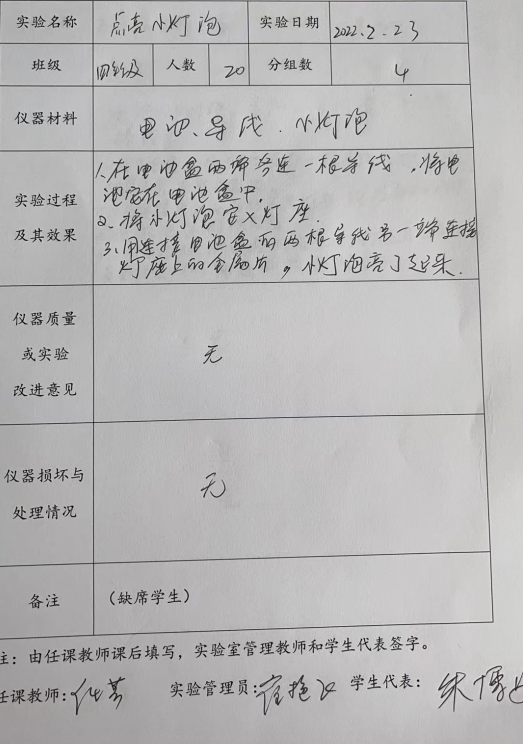 实验名称 点亮小灯泡 实验日期 2022.2.23
班级 四年级 人数 20 分组数 4
仪器材料 电池、导线、小灯泡
实验过程及其效果
1.在电池盒两端各连一根导线,将电
池安在电池盒中.
2.将小灯泡安入灯座.
3.用连接电池盒的两根导线另一端连接
灯座上的金属片,小灯泡亮了起来.
仪器质量
或实验 无
改进意见
仪器损坏与 无
处理情况
备注 (缺席学生)
注:由任课教师课后填写,实验室管理教师和学生代表签字。
任课教师: 实验管理员: 学生代表: